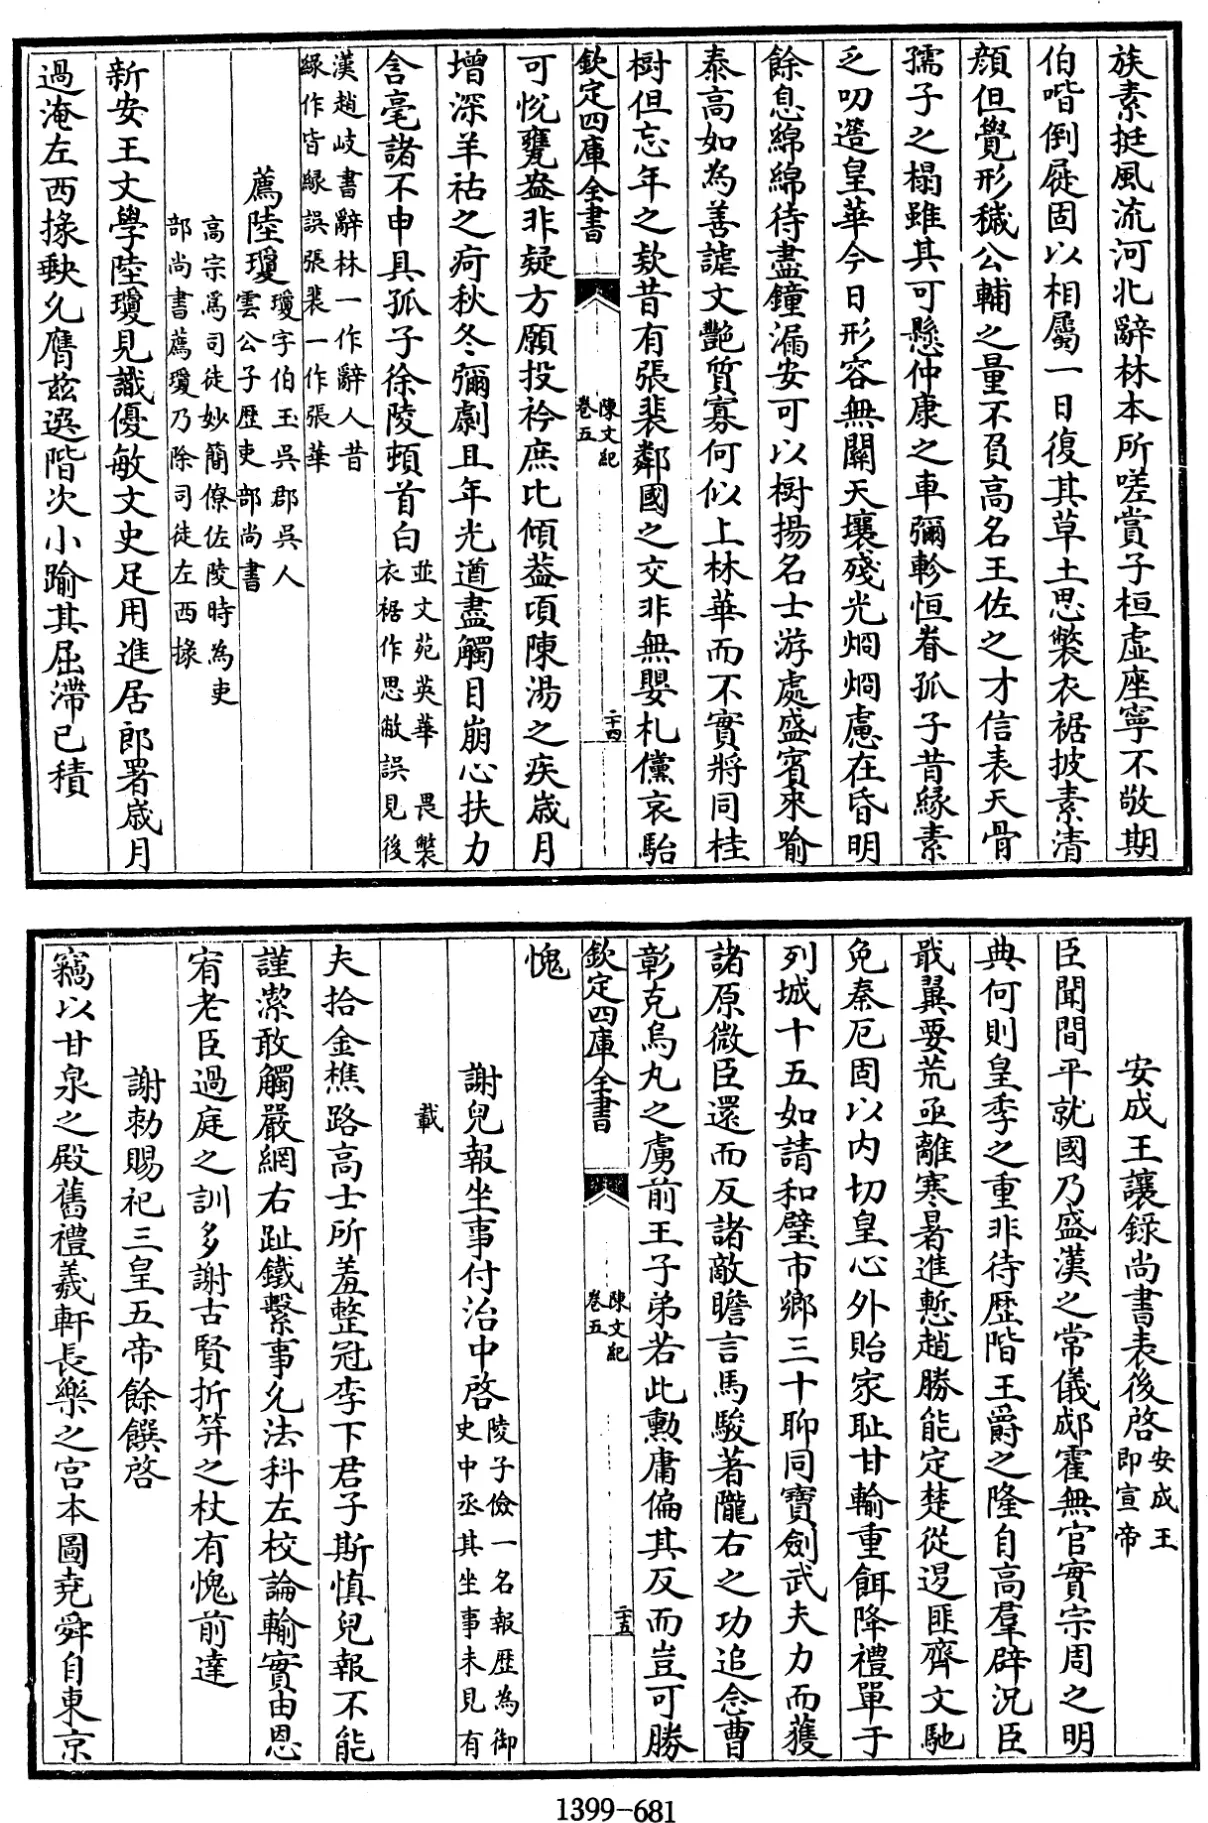 族素挺風流河北辭林本所嗟賞子桓虛座寧不敬期
伯喈倒屣固以相屬一日復其草土思褩衣裾披素清
顏但覺形穢公輔之量不負高名王佐之才信表天骨
孺子之榻雖其可懸仲康之車彌軫恒眷孤子昔緣素
乏叨簉皇華今日形容無關天壤殘光烱烱慮在昏明
餘息綿綿待盡鐘漏安可以樹揚名士游處盛賓來喻
泰高如為善謔文艷質寡何似上林華而不實將同桂
樹但忘年之欵昔有張裴鄰國之交非無嬰札儻哀駘
欽定四庫全書
陳文紀
卷五
二十四
可恱甕盎非疑方願投衿庶比傾葢頃陳湯之疾歲月
增深羊祜之疴秋冬彌劇且年光遒盡觸目崩心扶力
含毫諸不申具孤子徐陵頓首白並文苑英華 畏褩
衣裾作思敝誤見後
漢趙岐書辭林一作辭人昔
緣作皆縁誤張裴一作張華
薦陸瓊瓊字伯玉吳郡吳人
雲公子歴吏部尚書
高宗為司徒妙簡僚佐陵時為吏
部尚書薦瓊乃除司徒左西掾
新安王文學陸瓊見識優敏文史足用進居郎署歲月
過淹左西掾缺允膺兹選階次小踰其屈滯已積
安成王讓錄尚書表後啓安成王
即宣帝
臣聞間平就國乃盛漢之常儀郕霍無官實宗周之明
典何則皇季之重非待歴階王爵之隆自高羣辟況臣
戢翼要荒亟離寒暑進慙趙勝能定楚從逷匪齊文馳
免秦厄固以内切皇心外貽家耻甘輸重餌降禮單于
列城十五如請和璧市鄉三十聊同寶劍武夫力而獲
諸原微臣還而反諸敵瞻言馬駿著隴右之功追念曹
彰克烏丸之虜前王子弟若此勲庸偏其反而豈可勝
欽定四庫全書
陳文紀
卷五
二十五
愧
謝兒報坐事付治中啓陵子儉一名報歴為御
史中丞其坐事未見有
載
夫拾金樵路高士所羞整冠李下君子斯慎兒報不能
謹潔敢觸嚴網右趾鐵繫事允法科左校論輸實由恩
宥老臣過庭之訓多謝古賢折笄之杖有愧前達
謝勅賜祀三皇五帝餘饌啓
竊以甘泉之殿舊禮羲軒長樂之宮本圖堯舜自東京
1399-681